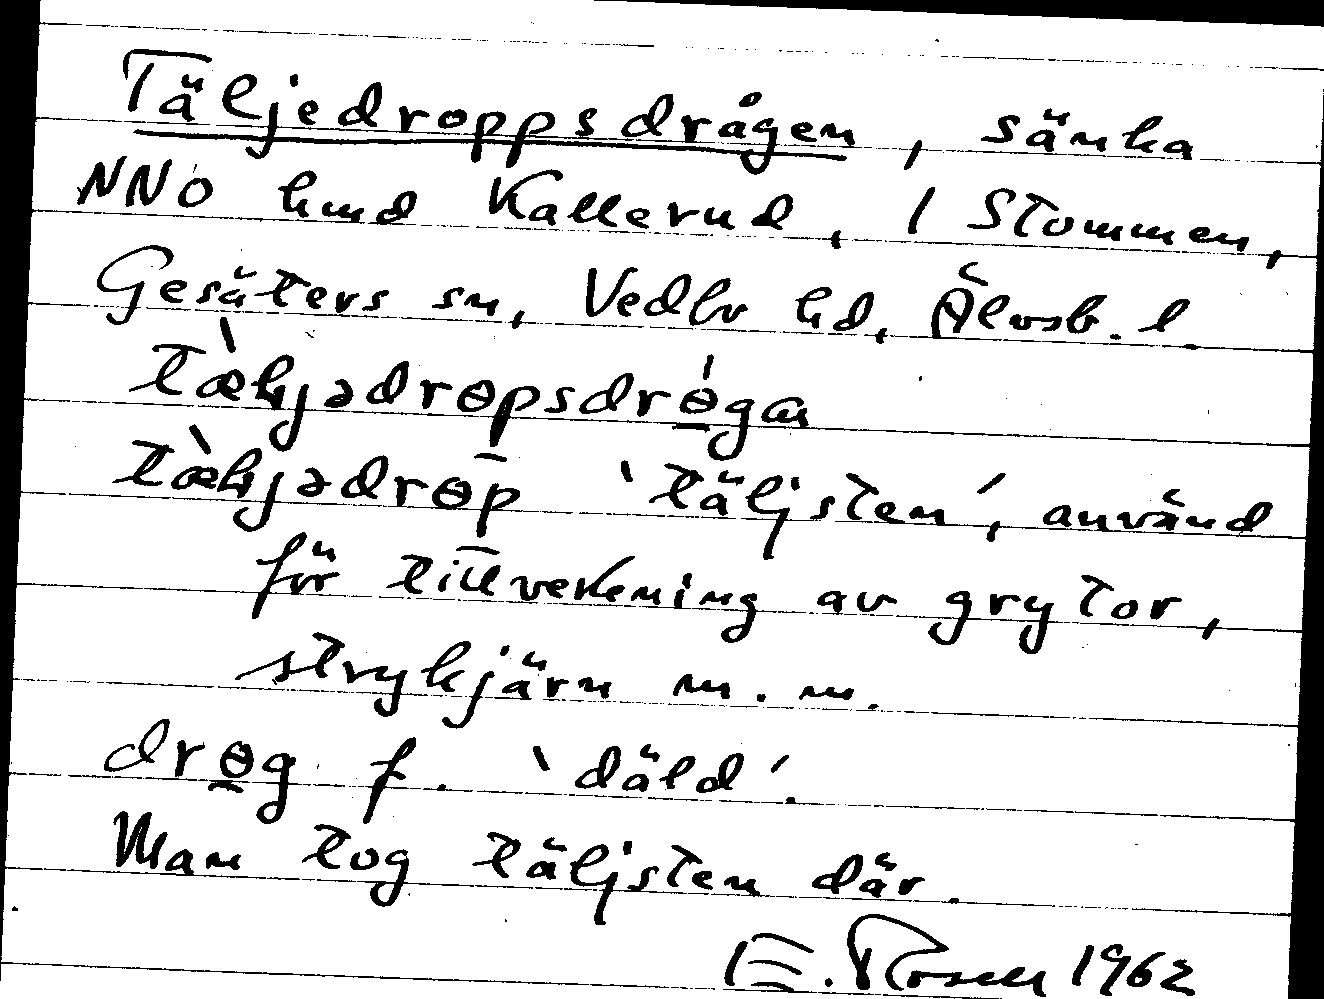 Täljedroppsdrågen, sänka
NNO hmd Kallerud, 1 Stommen,
Gesäters sn, Vedbo hd, Älvsb. l.
tæ̀ljədrɵpsdrɵ́gan
tæ̀ljədrɵp 'täljsten', använd
för tillverkning av grytor,
strykjärn m. m.
drɵg f. 'däld'.
Man tog täljsten där.
E. Rosell 1962